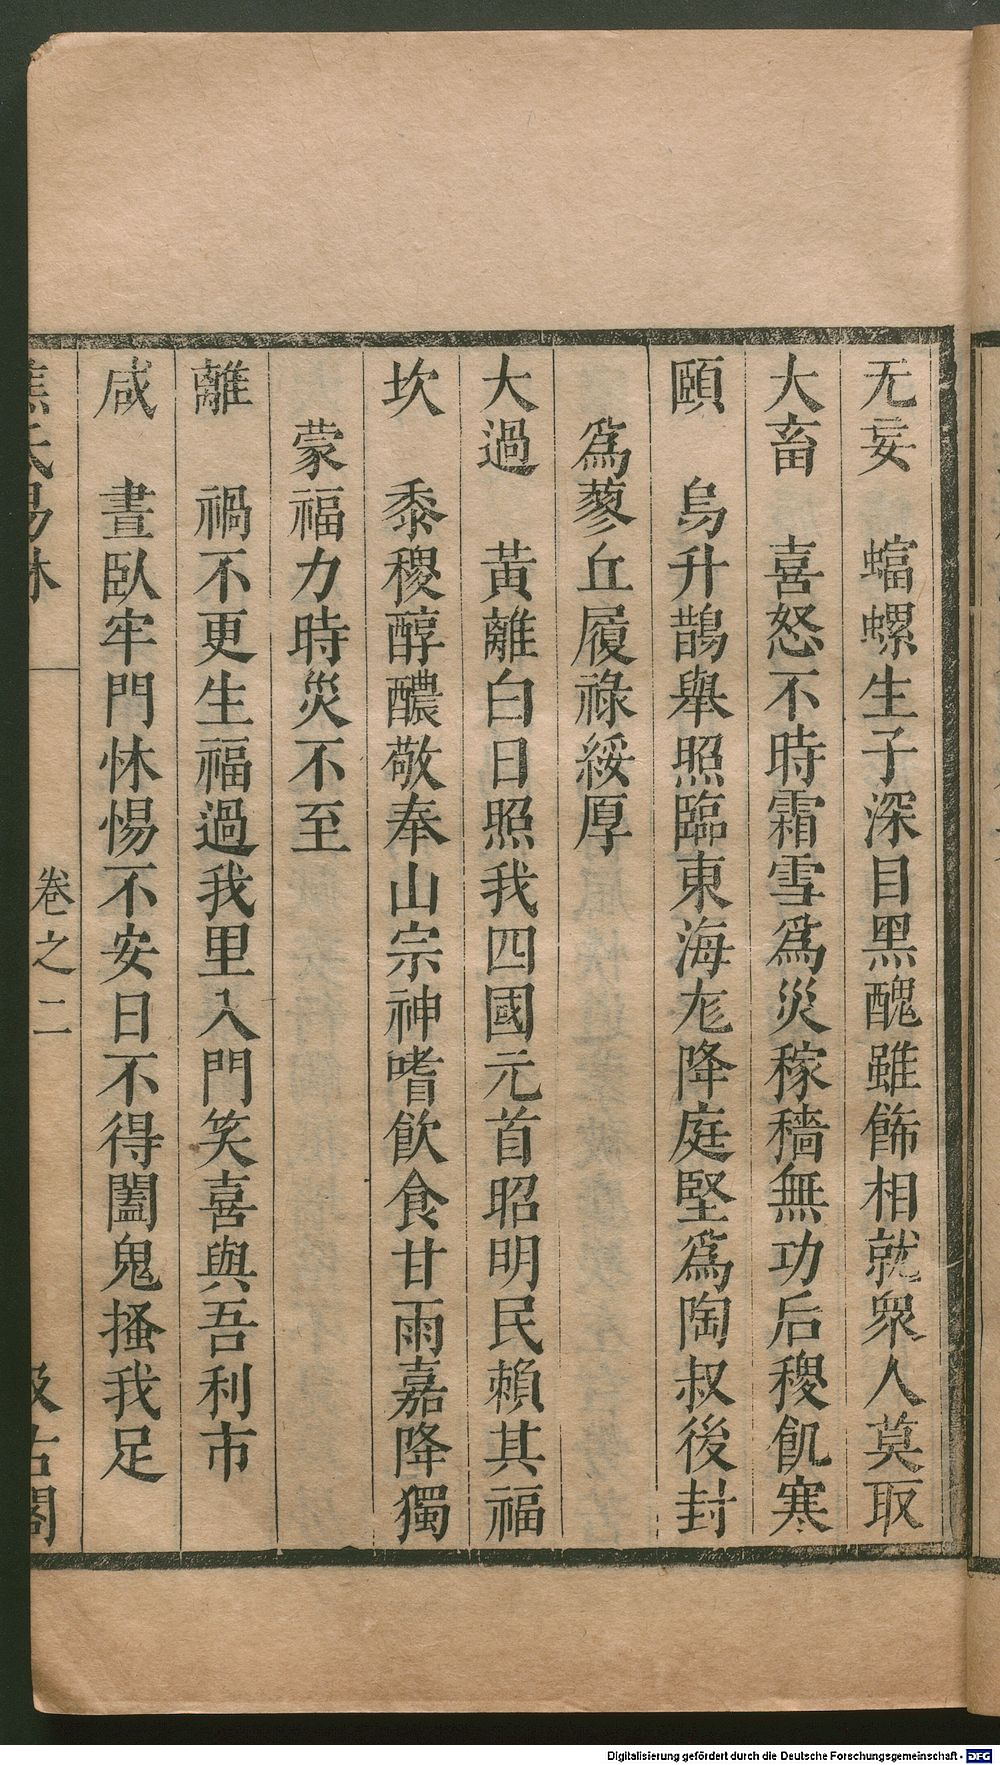 无妄 蝠螺生子深目黑醜雖飾相就衆人莫取
大畜 喜怒不時霜雪爲災稼穡無功后稷飢寒
頤 烏升鵲舉照臨東海尨降庭堅爲陶叔後封
爲蓼丘履祿綏厚
大過 黃離白日照我四國元首昭明民賴其福
坎 黍稷醇醲敬奉山宗神嗜飲食甘雨嘉降獨
蒙福力時災不至
離 禍不更生福過我里入門笑喜與吾利市
咸 晝臥牢門怵惕不安日不得闔鬼搔我足
焦氏易林 卷之二 汲古閣
Digitalisierung gefördert durch die Deutsche Forschungsgemeinschaft - DFG